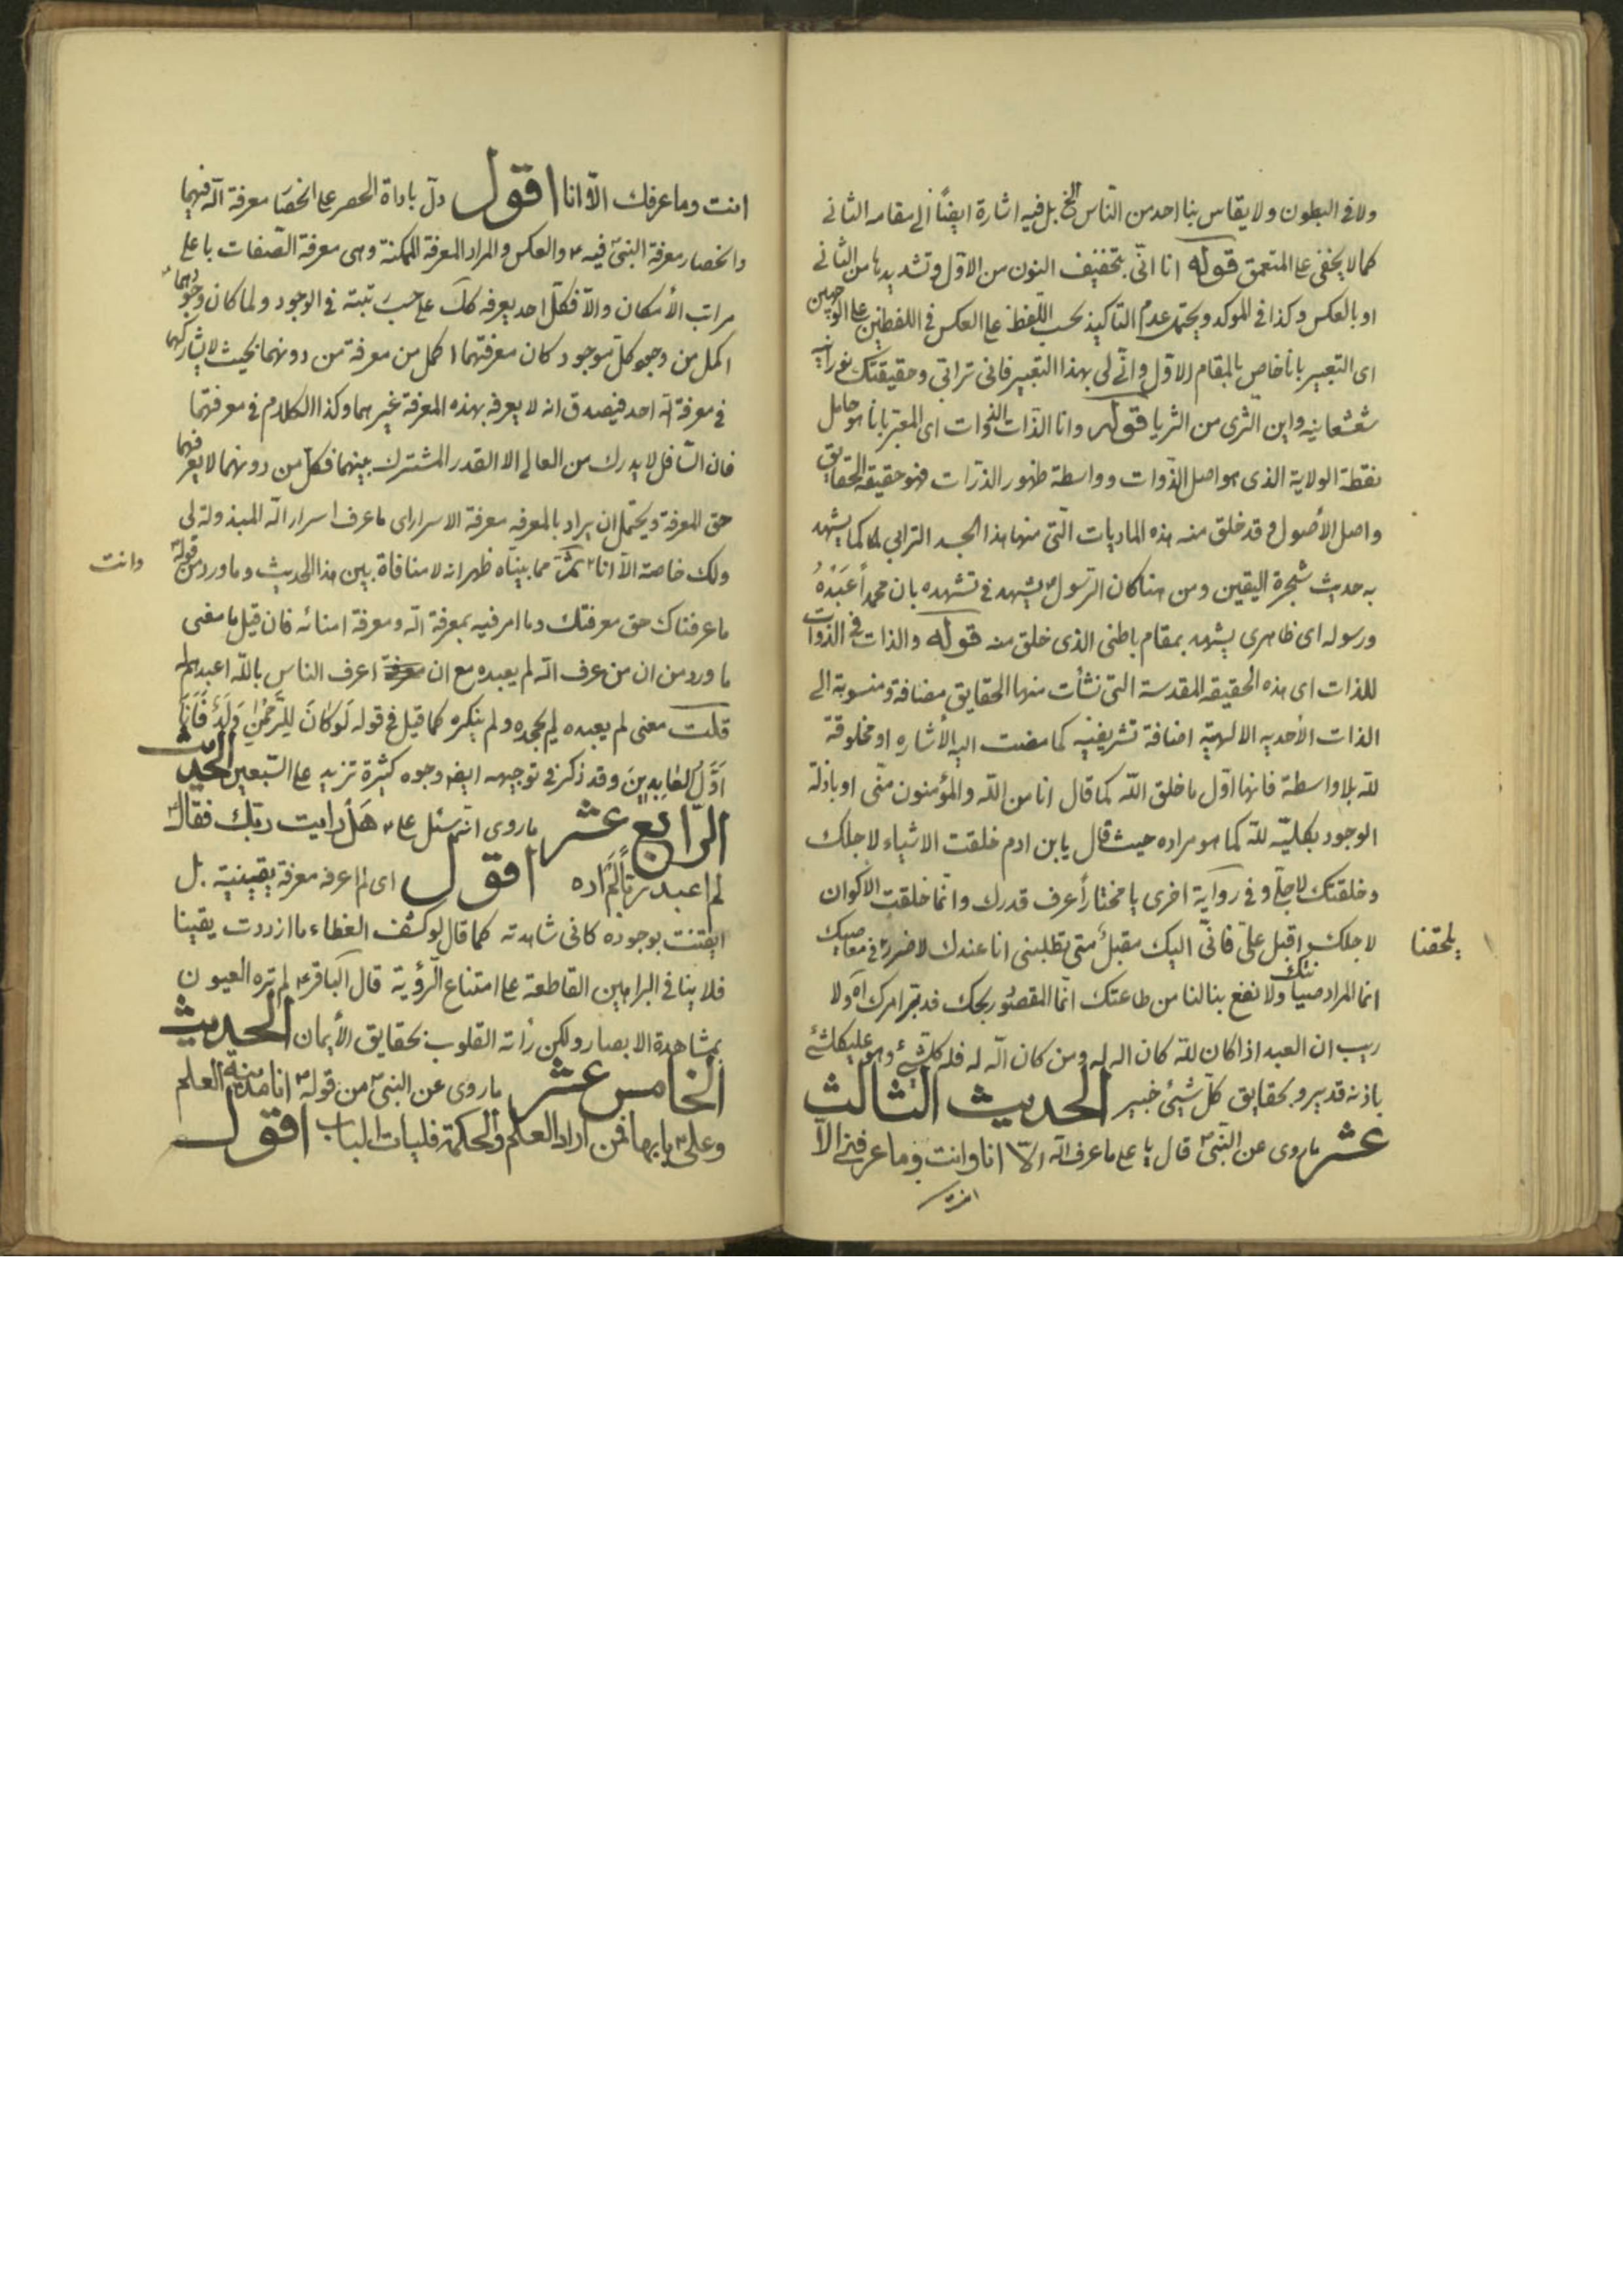 ولا فى البطون ولا يقاس بنا احد من الناس الخ بل فيه اشارة ايضًا الى مقامه الثانى
كما لا يخفى على المتعمق قوله انا انّى بتخفيف النون من الاوّل وتشديدها من الثانى
او بالعكس وكذا فى الموكد ويحتمل عدم التاكيد بحسب اللّفظ على العكس فى اللفظين على الوجهين
اى التعبير بانا خاص بالمقام الاوّل وانّى لى بهذا التعبير فانى ترابى وحقيقتك نورانيه
شعشعانيه واين الثرى من الثريا قوله وانا الذات الذوات اى المعبّر بانا هو حامل
نقطة الولاية الذى هو اصل الذّوات وواسطة ظهور الذرّات فهو حقيقة الحقايق
واصل الأصول وقد خلق منه هذه الماديات الّتى منها هذا الجسد الترابى كما يشهد
به حديث شجرة اليقين ومن هنا كان الرسول يشهد فى تشهده بان محمداً عَبْدُهُ
ورسوله اى ظاهرى يشهد بمقام باطنى الذى خلق منه قوله والذات فى الذوات
للذات اى هذه الحقيقه المقدسة التى نشأت منها الحقايق مضافة ومنسوبة الى
الذات الأحديه الالهيّة اضافة تشريفيّه كما مضت اليه الأشاره او مخلوقة
للّه بلا واسطة فانها اوّل ما خلق اللّه كما قال انا من اللّه والمؤمنون منّى او باذلة
الوجود بكليّته للّه كما هو مراده حيث قال يابن ادم خلقت الاشياء لاجلك
وخلقتك لاجلى وفى رواية اخرى يا مختاراً عرف قدرك وانّما خلقت الاكوان
لاجلك اقبل علىّ فانّى اليك مقبل متى تطلبنى انا عندك لا ضرر فى معاصيك
يلحقنا
انما المراد صيانتك ولا نفع ينالنا من طاعتك انّما المقصود ربحك فدبّر امرك اه ولا
ريب ان العبد اذا كان للّه كان اللّه له ومن كان اللّه له فله كلّ شئ وهو على كل شئ
باذنه قدير وبحقايق كلّ شيئ خبير الحديث الثالث
عشر ما روى عن النّبىّ قال يا على ما عرف اللّه الّا انا وانت وما عرفنى الّا
انت وما عرفك الّا انا اقول دلّ باداة الحصر على انحصار معرفة اللّه فيهما
وانحصار معرفة النبىّ فيه والعكس والمراد المعرفة الممكنة وهى معرفة الصّفات باعلى
مراتب الأمكان والّا فكلّ احد يعرفه كك على حسب رتبته فى الوجود ولما كان وجودهما
اكمل من وجود كلّ موجود كان معرفتهما اكمل من معرفة من دونهما بحيث لا يشاركهما
فى معرفة اللّه احد فيصدق انه لا يعرفه بهذه المعرفة غيرهما وكذا الكلام فى معرفتهما
فان السّافل لا يدرك من العالى الا القدر المشترك بينهما فكل من دونهما لا يعرفهما
حق المعرفة ويحتمل ان يراد بالمعرفه معرفة الاسرار اى ما عرف اسرار اللّه المبذولة لى
ولك خاصة الّا انا وانت ثمّ مما بيناه ظهر انه لا منافاة بين هذا الحديث وما ورد من قوله
ما عرفناك حق معرفتك وما امر فيه بمعرفة اللّه ومعرفة امنائه فان قيل ما معنى
ما ورد من ان من عرف اللّه لم يعبده مع ان اعرف الناس باللّه اعبدهم له
قلت معنى لم يعبده لم يجحده ولم ينكره كما قيل فى قوله لَوْ كَانَ لِلرَّحْمٰنِ وَلَدٌ فَاَنَا
اَوَّلُ الْعَابِدِينَ وقد ذكر فى توجيهه ايضا وجوه كثيرة تزيد على السّبعين الحديث
الرّابع عشر ما روى انّه سئل على هَلْ رايت ربّك فقال
لم اعبد ربّاً لَمْ اره اقول اى لم اعرفه معرفة يقينيّة بل
ايقنت بوجوده كانى شاهدته كما قال لو كشف الغطاء ما ازددت يقينا
فلا ينافى البراهين القاطعة على امتناع الرّؤية قال الباقر لم تره العيون
بمشاهدة الابصار ولكن رأته القلوب بحقايق الأيمان الحديث
الخامس عشر ما روى عن النبىّ من قوله انا مدينة العلم
وعلى بابها فمن اراد العلم والحكمة فليات الباب اقول